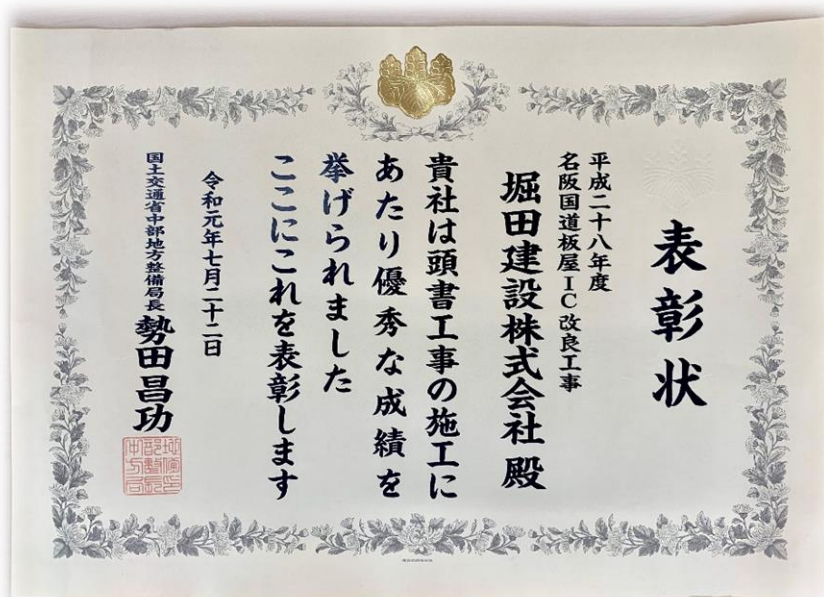 表彰状
平成二十八年度
名阪国道板屋IC改良工事
堀田建設株式会社 殿
貴社は頭書工事の施工に
あたり優秀な成績を
挙げられました
ここにこれを表彰します
令和元年七月二十二日
国土交通省中部地方整備局長 勢田昌功